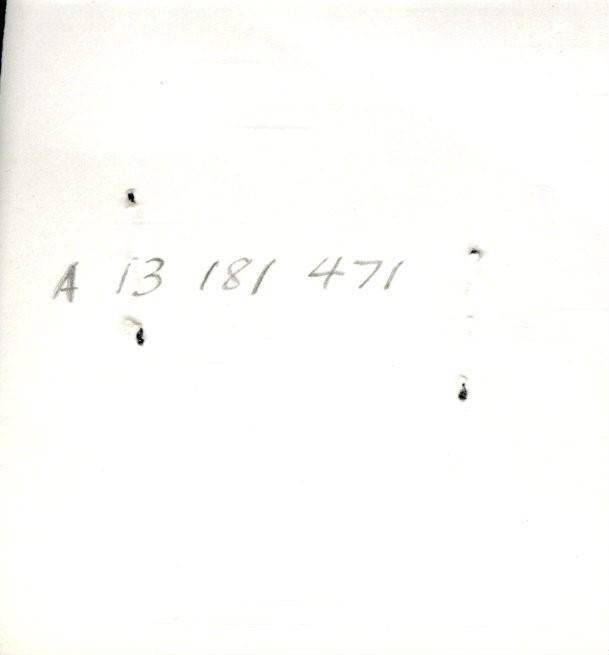 A 13 181 471